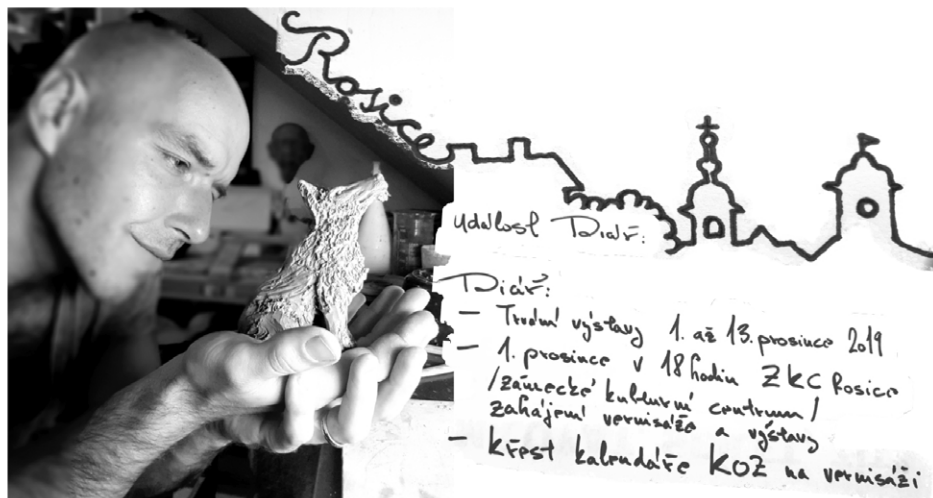 Rosice
událost Diář:
Diář:
- Trvání výstavy 1. až 13. prosince 2019
- 1. prosince v 18 hodin ZKC Rosice
/zámecké kulturní centrum/
zahájení vernisáže a výstavy
- křest kalendáře KOZ na vernisáži